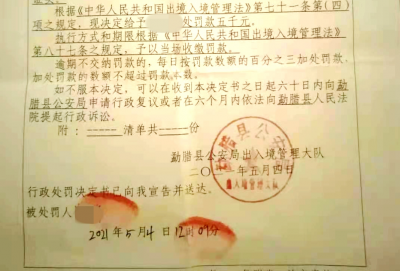 根据《中华人民共和国出境入境管理法》第七十一条第(四)
项之规定,现决定给予 处罚款五千元。
执行方式和期限根据《中华人民共和国出境入境管理法》
第八十七条之规定,予以当场收缴罚款。
逾期不交纳罚款的,每日按罚款数额的百分之三加处罚款,
加处罚款的数额不超过罚款本数。
如不服本决定,可以在收到本决定书之日起六十日内向勐
腊县公安局申请行政复议或者在六个月内依法向勐腊县人民法
院提起行政诉讼。
附:-----清单共-----份
勐腊县公安局出入境管理大队
二〇二一年五月四日
行政处罚决定书已向我宣告并送达。
被处罚人
2021年5月4日12时01分